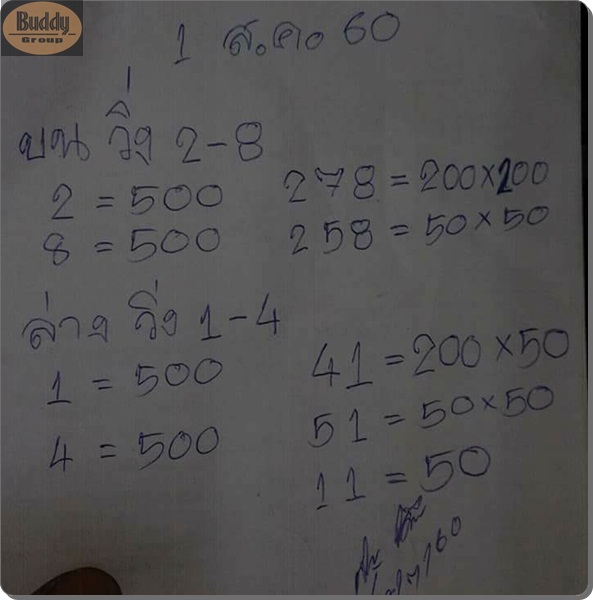 Buddy
Group
1 ส.ค. 60
บน วิ่ง 2-8
2 = 500
8 = 500
278 = 200x200
258 = 50x50
ล่าง วิ่ง 1-4
1 = 500
4 = 500
41 = 200x50
51 = 50x50
11 = 50